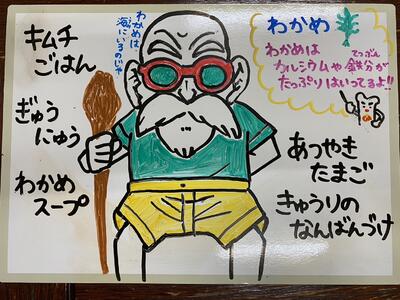 キムチ
ごはん
ぎゅう
にゅう
わかめ
スープ
わかめは
海にいるのじゃ
わかめ
わかめは
カルシウムや鉄分が
てつぶん
たっぷりはいってるよ!!
あつやき
たまご
きゅうりの
なんばんづけ